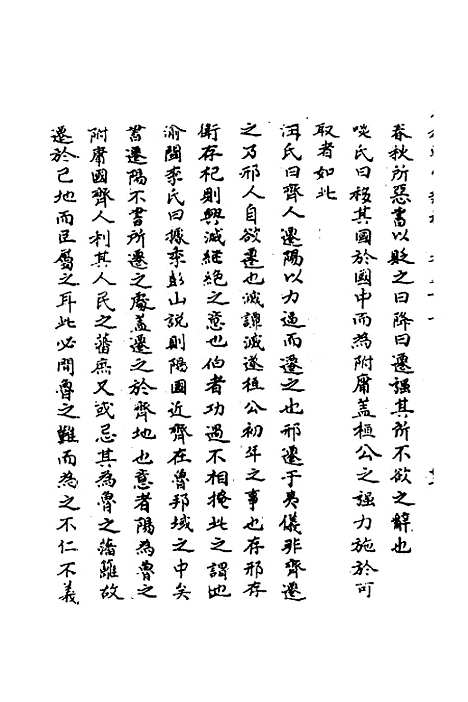 春秋所惡書以貶之曰降曰遷强其所不欲之辭也
啖氏曰移其國於國中而為附庸蓋桓公之强力施於可
取者如此
汪氏曰齊人遷陽以力逼而遷之也邢遷于夷儀非齊遷
之乃邢人自欲遷也滅譚滅遂桓公初年之事也存邢存
衛存杞則興滅繼絶之意也伯者功過不相掩此之謂也
渝閩李氏曰據季彭山說則陽國近齊在魯邦域之中矣
書遷陽不書所遷之處蓋遷之於齊地也意者陽為魯之
附庸國齊人利其人民之蕃庶又或忌其為魯之藩離故
遷於己地而臣屬之耳此必問魯之難而為之不仁不義